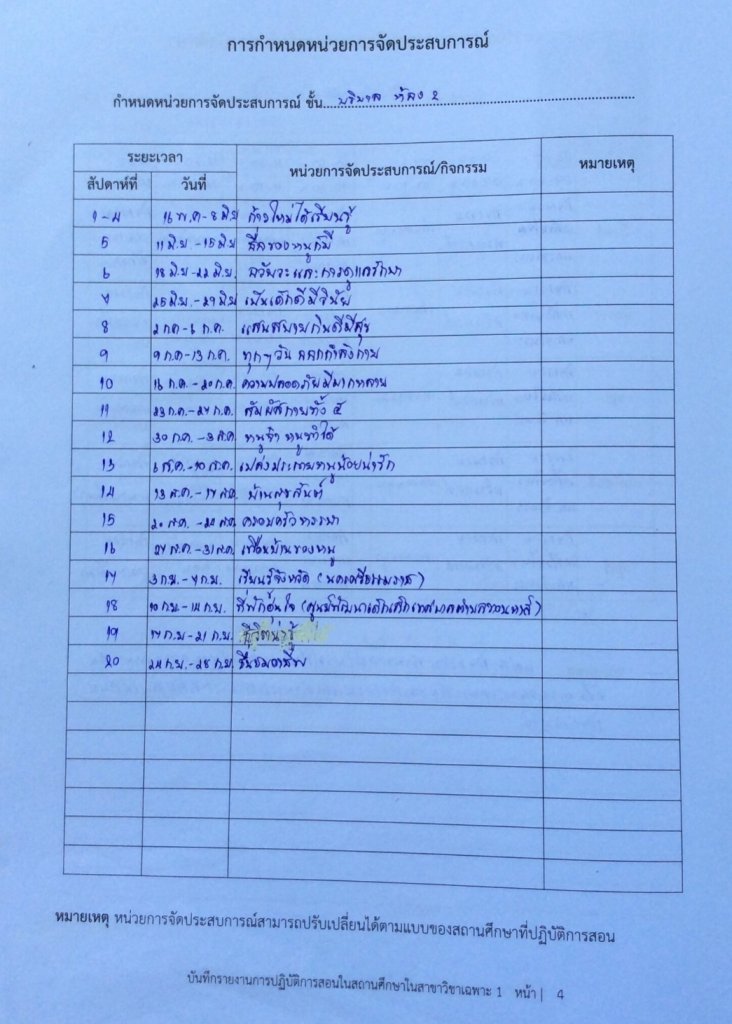 การกำหนดหน่วยการจัดประสบการณ์
กำหนดหน่วยการจัดประสบการณ์ ชั้น บริบาล ห้อง 2
ระยะเวลา หน่วยการจัดประสบการณ์/กิจกรรม หมายเหตุ
สัปดาห์ที่ วันที่
1-4 16 พ.ค-8 มิ.ย ก้าวใหม่ได้เรียนรู้
5 11 มิ.ย.-15 มิ.ย สี่ของหนูก็มี
6 18 มิ.ย.-22 มิ.ย. อวัยวะและการดูแลรักษา
7 25 มิ.ย.-29 มิ.ย เป็นเด็กดีมีวินัย
8 2 ก.ค-6 ก.ค. แสนสบายกินดีมีสุข
9 9 ก.ค-13 ก.ค. ทุกๆวัน ออกกำลังกาย
10 16 ก.ค.-20 ก.ค. ความปลอดภัยมีมากหลาย
11 23 ก.ค.-27 ก.ค. สัมผัสกายทั้ง ๕
12 30 ก.ค.-3 ส.ค หนูจ๋า หนูทำได้
13 6 ส.ค.-10 ส.ค. หนูน้อยน่ารัก
14 13 ส.ค.-17 ส.ค. บ้านสุขสันต์
15 20 ส.ค.-24 ส.ค. ครอบครัวหรรษา
16 27 ส.ค.-31 ส.ค. เพื่อนบ้านของหนู
17 3 ก.ย.-7 ก.ย. เรียนรู้จังหวัด (นครศรีธรรมราช)
18 10 ก.ย.-14 ก.ย. ที่พักอุ่นใจ (ศูนย์พัฒนาเด็กเล็ก
19 17 ก.ย-21 ก.ย. ชีวิตน่ารู้
20 24 ก.ย.-28 ก.ย. ชื่นชมอาชีพ
หมายเหตุ หน่วยการจัดประสบการณ์สามารถปรับเปลี่ยนได้ตามแบบของสถานศึกษาที่ปฏิบัติการสอน
บันทึกรายงานการปฏิบัติการสอนในสถานศึกษาในสาขาวิชาเฉพาะ 1 หน้า | 4